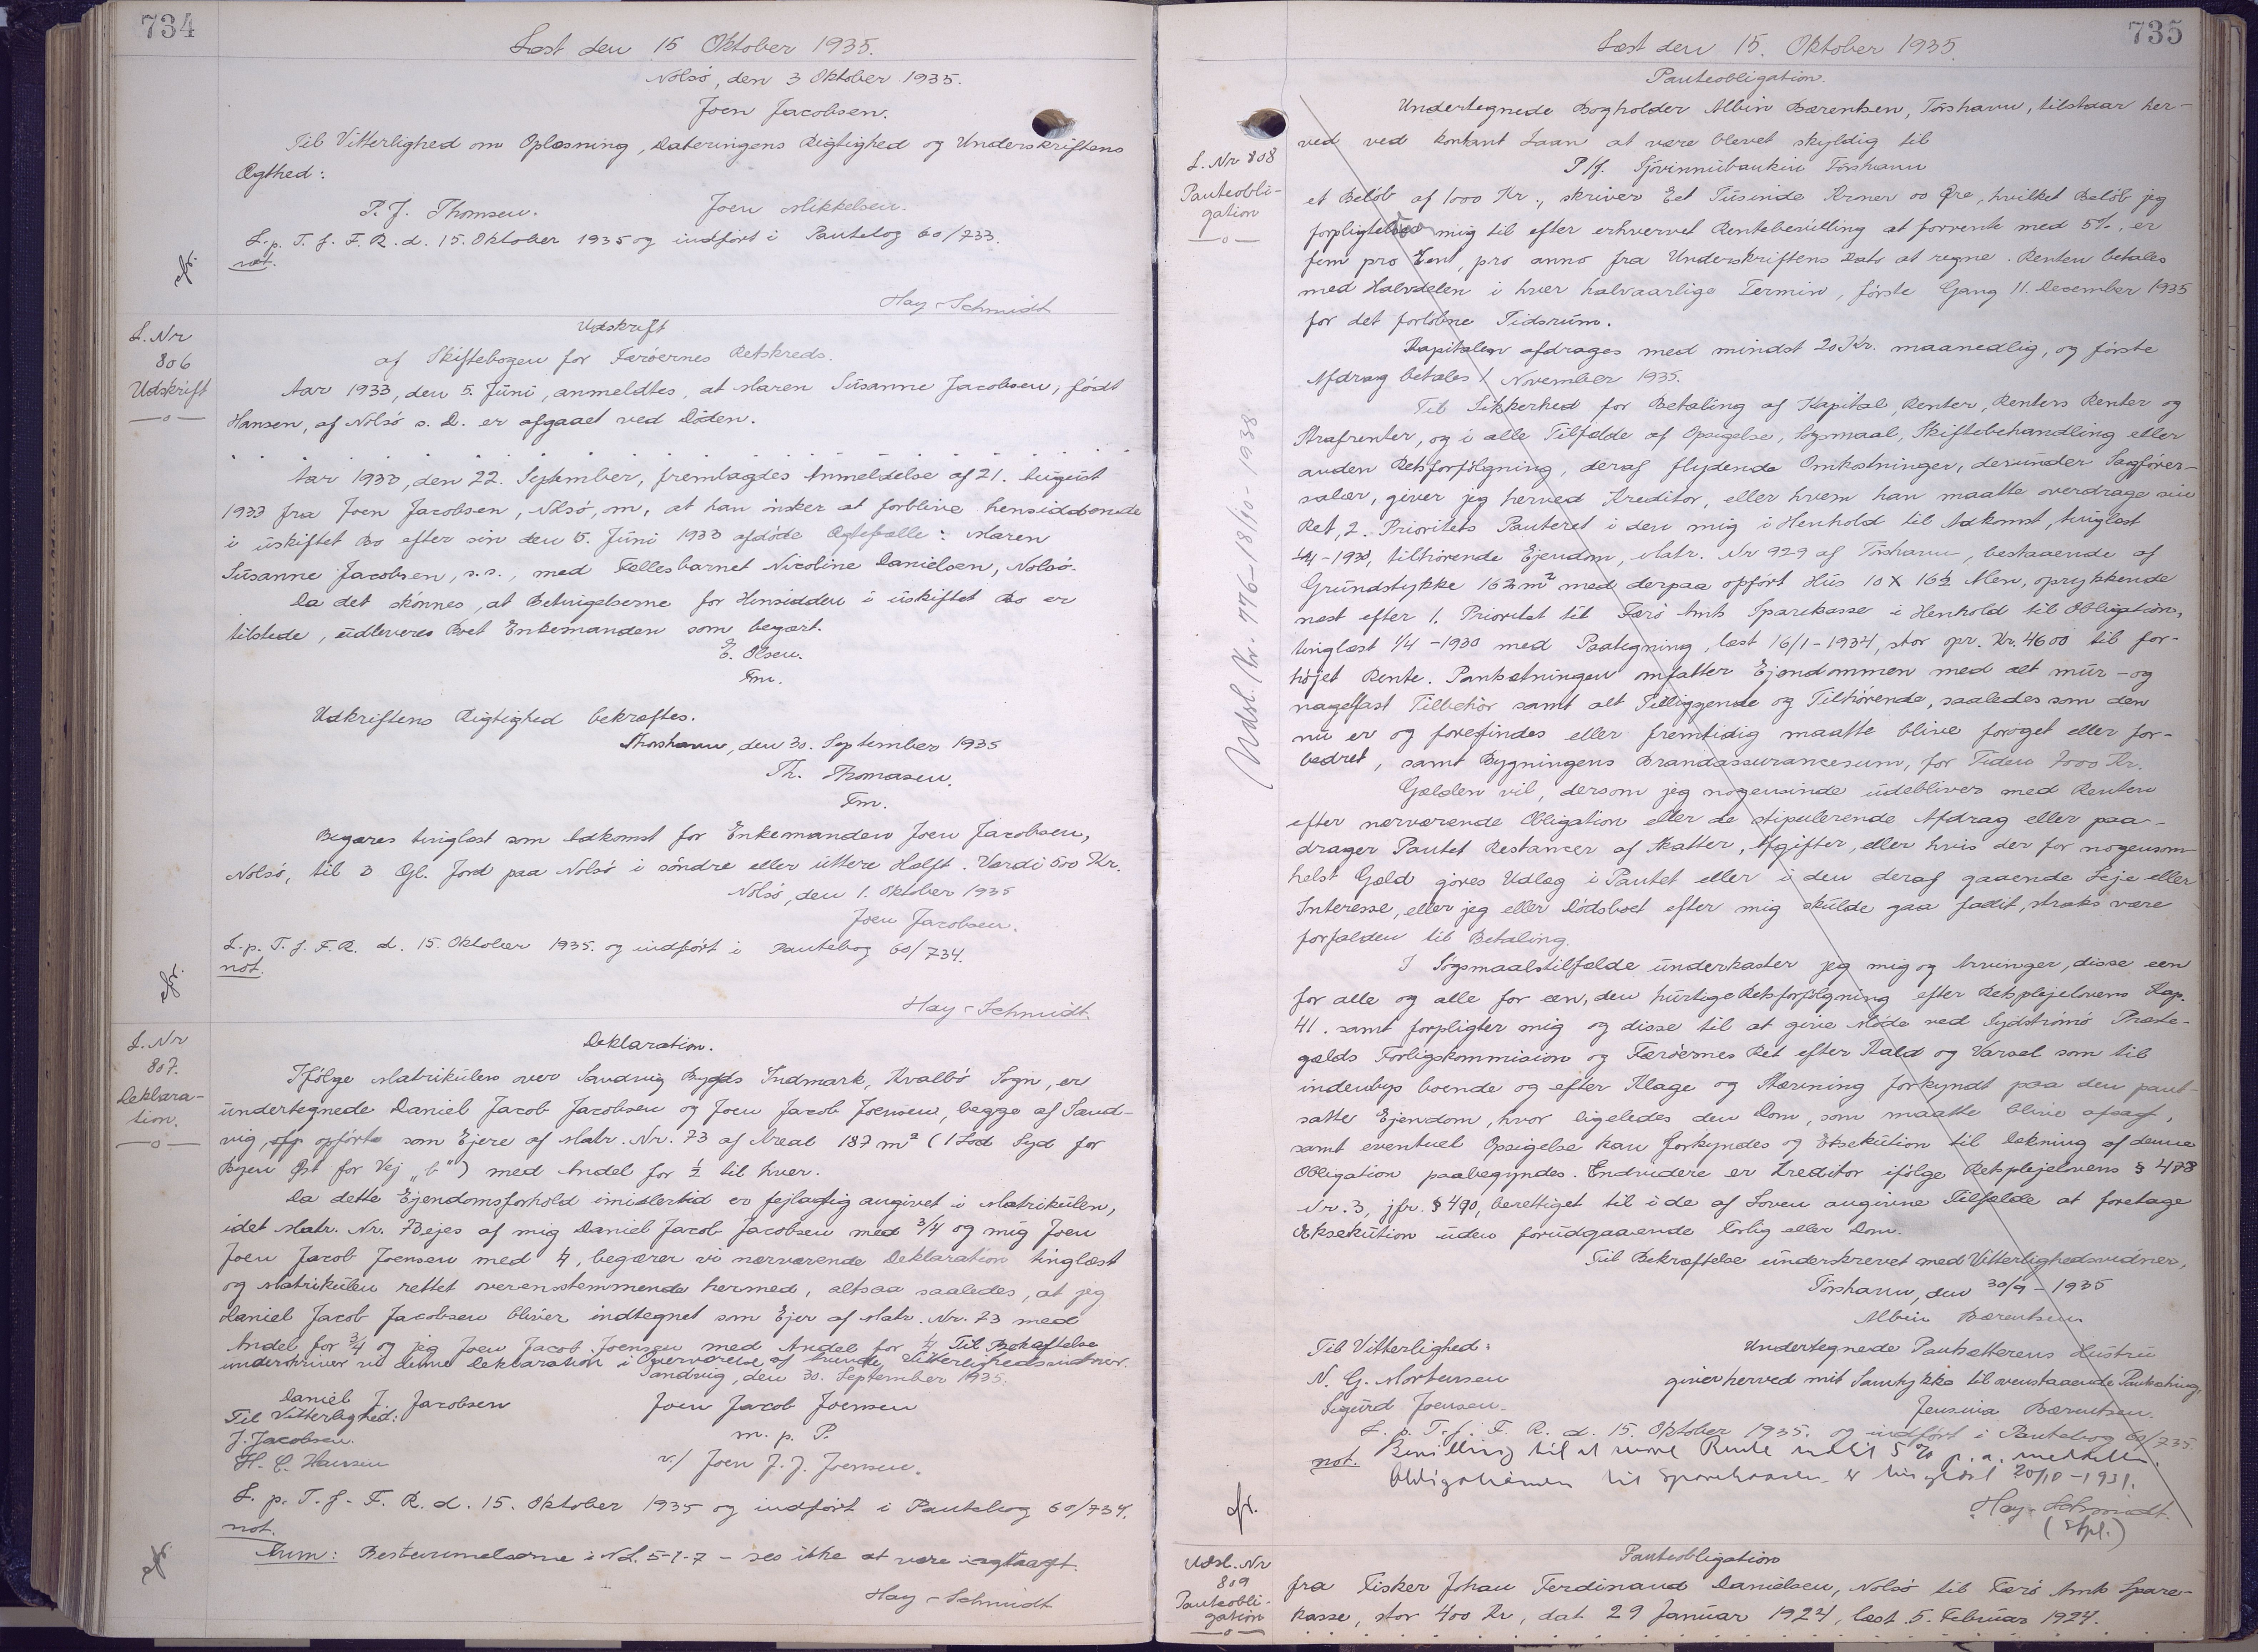 734
Læst den 15 Oktober 1935.
Nolsö, den 3 Oktober 1935.
Joen Jacobsen.
Til Vitterlighed om Oplæsning, Dateringens Rigtighed og Underskriftens
Ægthed:
P. J. Thomsen. Joen Mikkelsen.
L. p. T. f. F. R. d. 15. Oktober 1935 og indført i Pantebog 60/733.
not.
Hay-Schmidt
L. Nr
806
Udskrift
Udskrift
af Skiftebogen for Færöernes Retskreds.
Aar 1933, den 5. Juni, anmeldtes, at Maren Susanne Jacobsen, född
Hansen, af Nolsö s. D. er afgaaet ved Döden.
Aar 1933, den 22. September, fremlagdes Anmeldelse af 21. August
1933 fra Joen Jacobsen, Nolsö, om, at han önsker at forblive hensiddende
i uskiftet Bo efter sin den 5. Juni 1933 afdöde Ægtefælle: Maren
Susanne Jacobsen, s.s., med Fællesbarnet Nicoline Danielsen, Nolsö.
Da det skönnes, at Betingelserne for Hensidden i uskiftet Bo er
tilstede, udleveres Boet Enkemanden som begært.
E. Olsen.
Fm.
Udkriftens Rigtighed bekræftes.
Thorshavn, den 30. September 1935
Th. Thomasen.
Fm.
Begæres tinglæst som Adkomst for Enkemanden Joen Jacobsen,
Nolsö, til 3 Gl. Jord paa Nolsö i söndre eller uttere Halft. Værdi 500 Kr.
Nolsö, den 1. Oktober 1935
Joen Jacobsen.
L. p. T. f. F. R. d. 15. Oktober 1935. og indfört i Pantebog 60/734.
not.
Hay-Schmidt.
L. Nr
807.
Deklara-
tion.
Deklaration.
Ifölge Matrikulen over Sandvig Bygds Indmark, Kvalbö Sogn, er
undertegnede Daniel Jacob Jacobsen og Joen Jacob Joensen, begge af Sand-
vig, opp opförte som Ejere af Matr. Nr. 73 af Areal 187 m² (1 Lod Syd for
Byen Öst for Vej „b") med Andel for ½ til hver.
Da dette Ejendomsforhold imidlertid er fejlagtig angivet i Matrikulen,
idet Matr. Nr. 73 ejes af mig Daniel Jacob Jacobsen med 3/4 og mig Joen
Joen Jacob Joensen med ¼, begærer vi nærværende Deklaration tinglæst
og Matrikulen rettet overensstemmende hermed, altsaa saaledes, at jeg
Daniel Jacob Jacobsen bliver indtegnet som Ejer af Matr. Nr. 73 med
Andel for 3/4 og jeg Joen Jacob Joensen med Andel for ¼ Til Bekræftelse
underskriver vi denne Deklaration i Overværelse af tvende Vitterlighedsvidner.
Sandvig, den 30. September 1935.
Daniel J. Jacobsen Joen Jacob Joensen
Til Vitterlighed: m. p. P.
J. Jacobsen.
H. C. Hansen v/ Joen J. J. Joensen.
L. p. T. f. F. R. d. 15. Oktober 1935 og indfört i Pantebog 60/734.
not.
Anm: Bestemmelserne i N L. 5-1-7 – ses ikke at være iagttaget.
Hay-Schmidt
735
Læst den 15. Oktober 1935
L. Nr 808
Panteobli-
gation
Udsl. Nr. 776-18/10-1938
Panteobligation.
Undertegnede Bogholder Albin Bærentsen, Torshavn, tilstaar her-
ved ved kontant Laan at være blevet skyldig til
P/f. Sjóvinnubankin Torshavn
et Belöb af 1000 Kr., skriver Eet Tusinde Kroner 00 Øre, hvilket Belöb jeg
forpligter mig til efter erhvervet Rentebevilling at forrente med 5%, er
fem pro Cent, pro anno fra Underskriftens Dato at regne. Renten betales
med Halvdelen i hver halvaarlige Termin, förste Gang 11. December 1935
for det forlöbne Tidsrum.
Kapitalen afdrages med mindst 20 Kr. maanedlig, og förste
Afdrag betales 1 November 1935.
Til Sikkerhed for Betaling af Kapital, Renter, Renters Renter og
Strafrenter, og i alle Tilfælde af Opsigelse, Sögsmaal, Skiftebehandling eller
anden Retsforfölgning, deraf flydende Omkostninger, derunder Sagförer-
salær, giver jeg herved Kreditor, eller hvem han maatte overdrage sin
Ret, 2. Prioritets Panteret i den mig i Henhold til Adkomst, tinglæst
1/4-1930, tilhörende Ejendom, Matr. Nr 929 af Torshavn, bestaaende af
Grundstykke 162 m² med derpaa opfört Hus 10 X 16½ Alen, oprykkende
næst efter 1. Prioritet til Færö Amts Sparekasse i Henhold til Obligation,
tinglæst 1/4-1930 med Paategning, læst 16/1-1934, stor opr. Kr. 4600 til for-
höjet Rente. Pantsætningen omfatter Ejendommen med alt mur- og
nagelfast Tilbehör samt alt Tilliggende og Tilhörende, saaledes som den
nu er og forefindes eller fremtidig maatte blive foröget eller for-
bedret, samt Bygningens Brandassurancesum, for Tiden 7000 Kr.
Gælden vil, dersom jeg nogensinde udebliver med Renten
efter nærværende Obligation eller de stipulerende Afdrag eller paa-
drager Pantet Restancer af Skatter, Afgifter, eller hvis der for nogensom-
helst Gæld göres Udlæg i Pantet eller i den deraf gaaende Leje eller
Interesse, eller jeg eller Dödsboet efter mig skulde gaa fallit, straks være
forfalden til Betaling.
I Sögsmaalstilfælde underkaster jeg mig og Arvinger, disse een
for alle og alle for een, den hurtige Retsforfölgning efter Retsplejelovens Kap.
41. samt forpligter mig og disse til at give Möde ved Sydströmö Præste-
gælds Forligskommision og Færöernes Ret efter Kald og Varsel som til
indenbys boende og efter Klage og Stævning forkyndt paa den pant-
satte Ejendom, hvor ligeledes den Dom, som maatte blive afsagt,
samt eventuel Opsigelse kan forkyndes og Eksekution til Dækning af denne
Obligation paabegyndes. Endvidere er Kreditor ifölge Retsplejelovens § 478
Nr. 3, jfr. § 490, berettiget til i de af Loven angivne Tilfælde at foretage
Eksekution uden forudgaaende Forlig eller Dom.
Til Bekræftelse underskrevet med Vitterlighedsvidner,
Torshavn, den 30/9-1935
Albin Bærentsen
Til Vitterlighed: Undertegnede Pantsætterens Hustru
N. G. Mortensen giver herved mit Samtykke til ovenstaaende Pantsætning.
Sigurd Joensen. Jensina Bærentsen.
L. p. T. f. F. R. d. 15. Oktober 1935. og indfört i Pantebog 60/735.
not. Bevilling til at nyde Rente indtil 5 % p.a. meddelt.
Obligationen til Sparekassen er tinglæst 20/10-1931.
Hay-Schmidt.
(Stpl.)
Udsl. Nr
809
Panteobli-
gation
Panteobligation
fra Fisker Johan Ferdinand Danielsen, Nolsö til Færö Amts Spare-
kasse, stor 400 Kr, dat 29 Januar 1924, læst 5. Februar 1924.